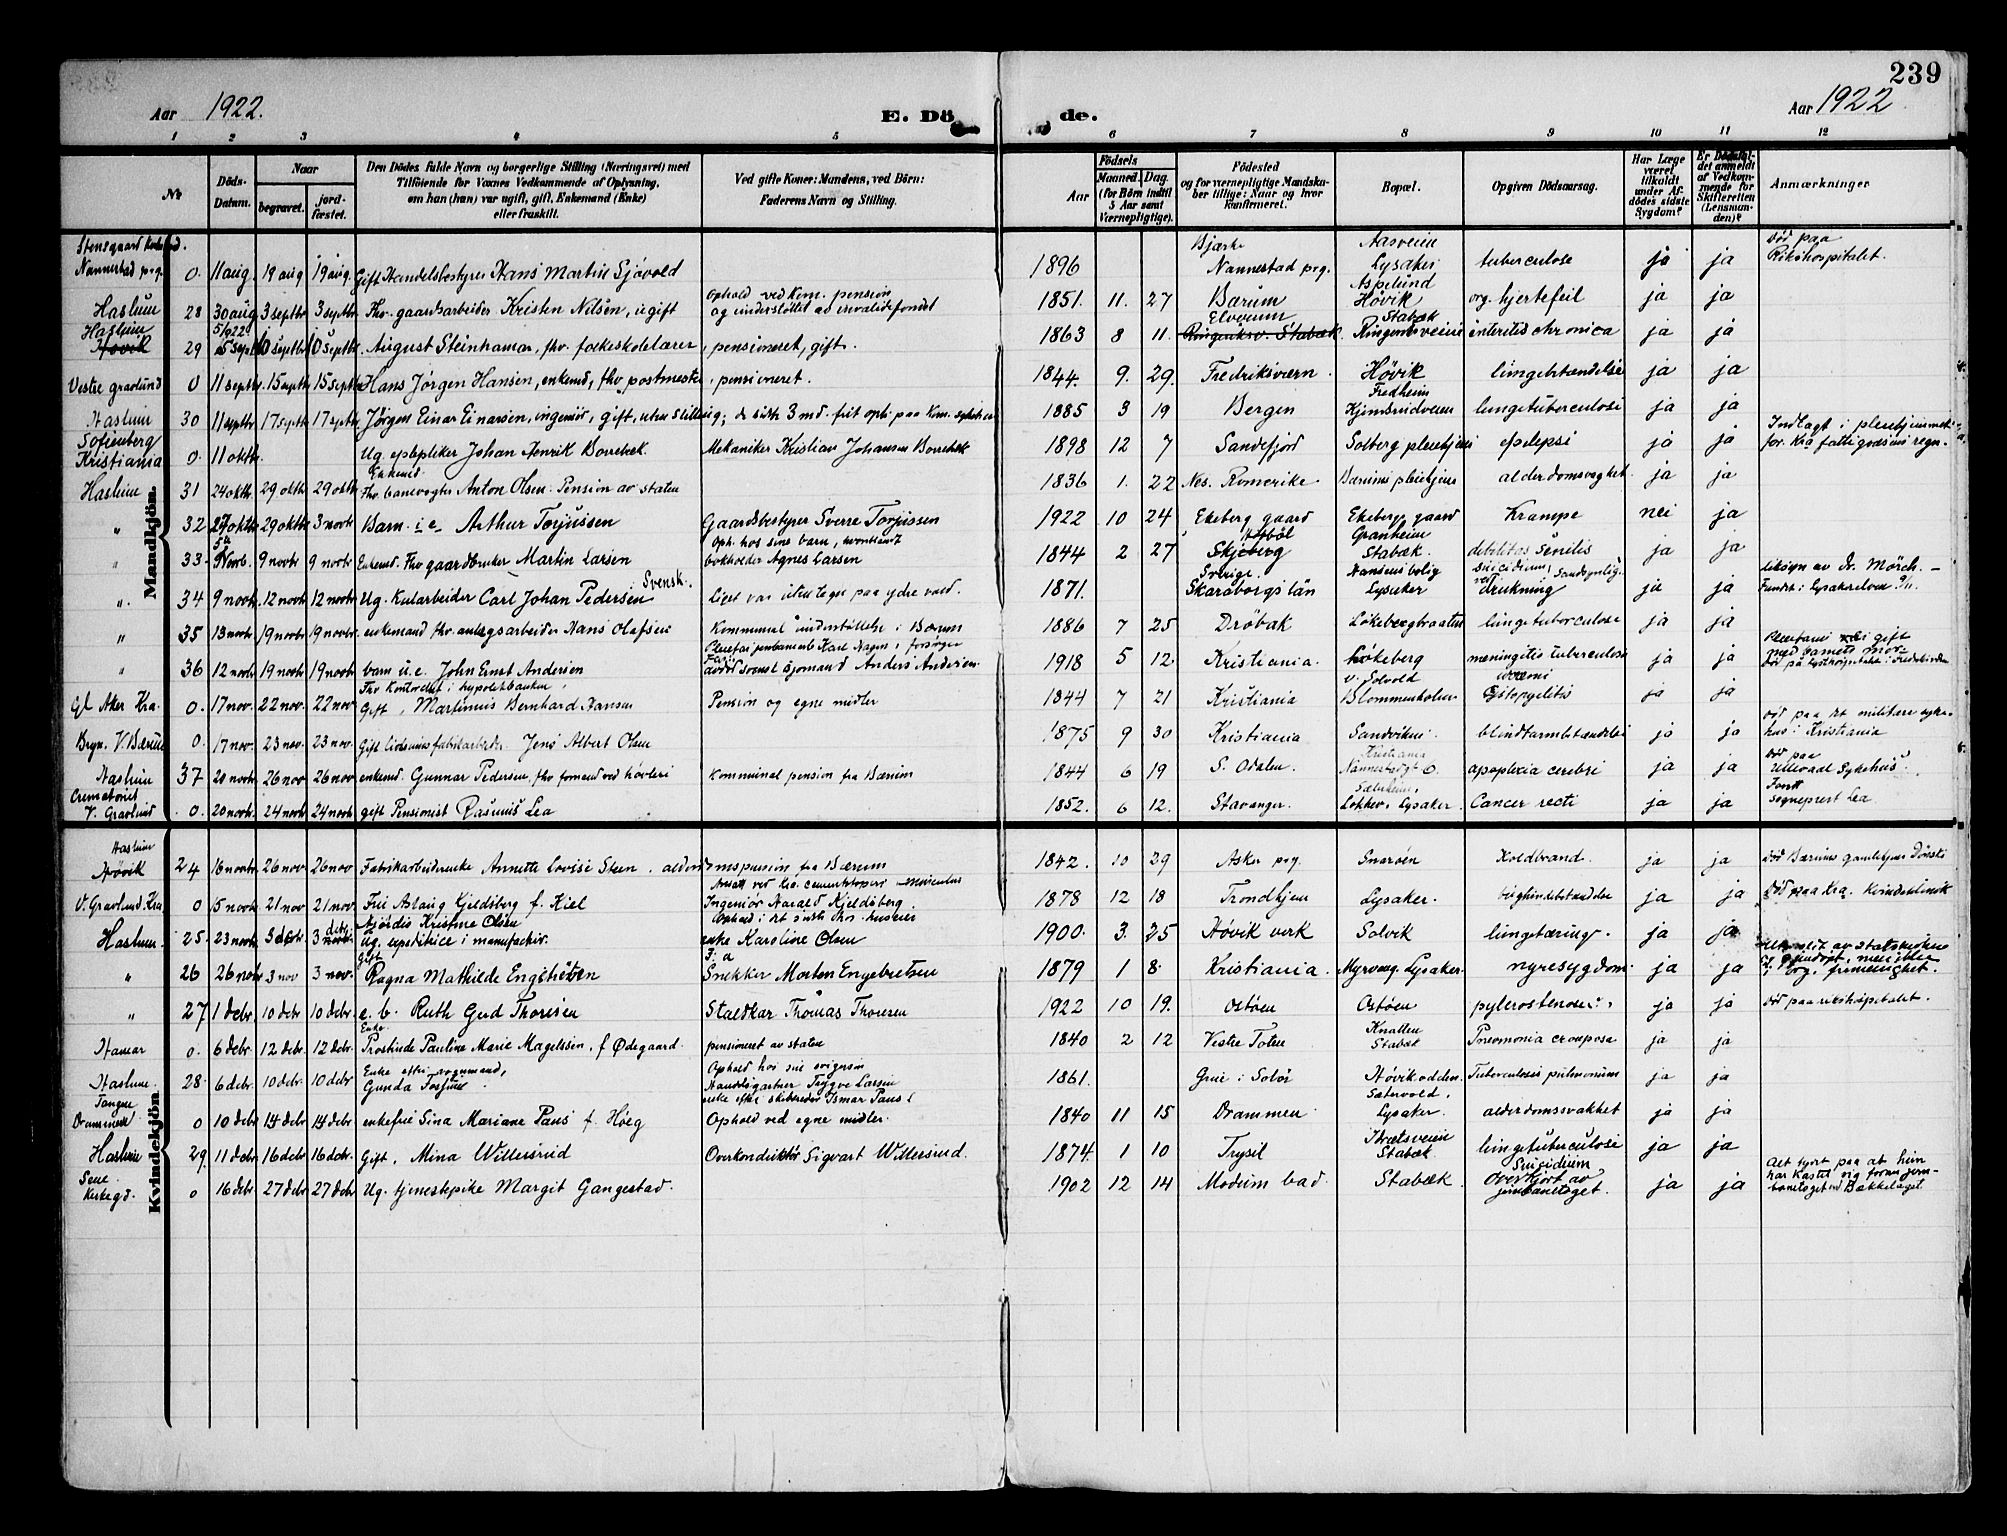 239
Aar 1922.
E. Döde.
Aar 1922
1 2 3 4 5 6 7 8 9 10 11 12
No
Döds-Datum.
Naar
begravet.
jord-fæstet.
Den Dödes fulde Navn og borgerlige Stilling (Næringsvei) med
Tilföiende for Voxnes Vedkommende af Oplysning,
om han (hun) var ugift, gift, Enkemand (Enke)
eller fraskilt.
Ved gifte Koner: Mandens, ved Börn:
Faderens Navn og Stilling.
Födsels
Aar
Maaned.
Dag.
(for Börn indtil
5 Aar samt
Værnepligtige).
Födested
og for værnepligtige Mandska-
ber tillige: Naar og hvor
konfirmeret.
Bopæl.
Opgiven Dödsaarsag.
Har Læge
været
tilkaldt
under Af-
dödes sidste
Sygdom?
Er Dödsfal-
det anmeldt
af Vedkom-
mende for
Skifteretten
(Lensman-
den)?
Anmærkninger
Mandkjön.
Nannestad prg. 0 11 aug. 19 aug 19 aug. Gift Handelsbestyrer Hans Martin Sjøvold 1896 Bjerke Nannestad prg. Aasveien Lysaker tuberculose ja ja Død paa Rikshospitalet.
Haslum 28 30 aug. 3 septbr 3 septbr. Fhv. gaardsarbeider Kristen Nilsen, ugift Ophold ved kom. pension og understøttet av invalidefondet 1851. 11. 27 Bærum Asplund Høvik org. hjertefeil ja ja
Haslum Høvik 29 5/9 22 10 septbr 10 septbr. August Steinhamar, fhv. folkeskolelærer, pensioneret, gift. 1863 8 11. Elverum Ringeriksv. Stabæk Stabæk Ringeriksveien interitis chronica ja ja
Vestre gravlund 0 11 septbr. 15 septbr 15 septbr. Hans Jørgen Hansen, enkemd, fhv postmester, pensioneret. 1844. 9. 29. Fredriksværn. Høvik lungebetændelse ja ja
Haslum 30 11 septbr 17 septbr 17 septbr. Jørgen Einar Einarsen, ingeniør, gift, uten stilling; de sidste 3 md. frit oph. paa Kom. sykehus 1885 3 19 Bergen Fredheim lungetuberculose ja ja
Sofienberg Kristiania 0. 11 oktb. Ug. epleptiker Johan Henrik Borrebæk. Mekaniker Kristian Johansen Borrebæk 1898 12 7 Sandefjord Solberg pleiehjem epilepsi ja ja Indlagt i pleiehjemmet for Kra fattigvæsens regn.
Haslum 31 24 oktb 29 oktb 29 oktb Enkemd. Fhv. banevogter Anton Olsen. Pension av staten 1836 1. 22 Nes. Romerike Bærums pleiehjem alderdomsvaghet. ja ja
" 32 27 oktb 29 oktb 3 novbr Barn i.e. Arthur Torjussen Gaardsbestyrer Sverre Torjussen 1922 10 24 Ekeberg gaard Ekebergs gaard Krampe nei ja
" 33 9 novbr 9 novbr Enkemd. Fhv gaardbruker Martin Larsen Oph. hos sine barn, bokholder Agnes Larsen 1844 2 27 Skjeberg Granheim Stabæk. debilitas senilis ja ja
". 34 9 novbr. 12 novbr. 12 novbr. Ug. Kularbeider Carl Johan Pedersen Svensk. Liget var uten tegn paa ydre vold. 1871. Sverige. Skaraborgs län Hansens bolig Lysaker suicidium, sandsynlig ved drukning ja ja liksyn av Dr. Mörch. – Fundet i Lysakerelven 9/11.
" 35 13 novbr 19 novbr. 19 novbr. enkemand fhv. anlægsarbeider Hans Olafsen Kommunal understøttelse i Bærum 1886 7 25 Drøbak Løkebergbraaten lungetuberculose ja ja
" 36 12 novbr. 19 novbr. 19 novbr. barn u.e. John Ernst Andersen Pleiefar Karl Hagen, forsørger Far død svensk sjømand Anders Andersen. 1918 5 12. Kristiania. Løkeberg meningitis tuberculose ja ja Pleiefaren ei gift med barnets mor.
Gl Aker Kra. 0. 17 nov. 22 nov. 22 nov Fhv kontorchef i hypotekbanken, Gift, Martinus Bernhard Hansen Pension og egne midler 1844 7 21 Kristiania v. Solvold Blommenholm uræmi Cystopyelitis ja ja
Bryn. V. Bærum 0. 17 nov. 23 nov. 23 nov. Gift Jens Albert Olsen 1875 9 30 Kristiania Sandviken. blindtarmbetændelse ja ja Død paa det militære sykehus i Kristiania
Haslum 37 20 novbr. 26 nov 26 nov. enkemd. Gunnar Pedersen, fhv formand ved høvleri Kommunal pension fra Bærum 1844 6 19 S. Odalen. Kristiania apoplexia cerebri ja ja Død paa Ullevaal Sykehus.
Crematoriet V. Gravlund 0. 20 novb. 24 novb 24 novb. gift Pensionist Rasmus Lea 1852. 6 12. Stavanger. Lysaker. Cancer recti ja ja sogneprest Lea
Kvindekjön
Haslum Høvik 24 16 novbr. 26 nov 26 nov Fabrikarbeiderenke Annette Lovise Steen. alderdomspension fra Bærum 1842. 10 29 Asker prg. Snarøen Koldbrand. ja ja Død Bærums gamlehjem Dønski
V. Gravlund Kra 0 15 novb 21 nov 21 nov. Fru Aslaug Kjeldsberg f. Kiel Ingeniør Harald Kjeldsberg. 1878 12 18 Trondhjem Lysaker. bughindebetændelse ja ja Død paa Kra. Kvindeklinik
Haslum 25. 23 novb. 3 debr 3 debr Hjørdis Kristine Olsen Ug. expeditrice i manufaktur. enke Karoline Olsen 1900. 3. 25 Høvik verk Solvik lungetæring. ja ja
" 26 26 novb 3 nov 3 nov. gift Ragna Mathilde Engebretsen Snekker Morten Engebretsen 1879 1 8. Kristiania. Myrveng. Lysaker. nyresygdom ja ja
" 27 1 debr. 10 debr 10 debr. e. b. Ruth Gerd Thoresen Staldkar Thomas Thoresen 1922 10 19. Ostøen Ostøen pylerostenose ja ja Død paa rikshospitalet.
Hamar 0. 6 debr. 12 debr. 12 debr. Enke Prostinde Pauline Marie Magelssen, f Ødegaard. pensioneret av staten 1840 2 12 Vestre Toten Knatten Stabæk Pneumonia crouposa ja ja
Haslum. 28. 6 debr. 10 debr 10 debr Enke efter vognmand, Gunda Ophold hos sin svigersøn Handelsgartner Trygve Larsen 1861. Grue i Solør Høvikodden. Tuberculosis pulmonum ja ja
Tangen Drammen 0 10 debr 14 debr 14 debr. enkefru Sina Mariane Paus f. Høeg enke efter skibsreder Ismar Paus. Ophold ved egne midler. 1840 11 15 Drammen Sætervold. Lysaker. alderdomssvakhet ja ja
Haslum 29. 11 debr 16 debr 16 debr. Gift, Mina Willersrud Overkonduktør Sigvart Willersrud. 1874. 1 10 Trysil Idrætsveien Stabæk. lungetuberculose ja ja
Kirkegd. 0 16 debr 27 debr 27 debr. Ug. tjenestepike Margit Gangestad. 1902 12 14 Modum bad. Stabæk Suicidium Overkjørt av jernbanetoget. ja ja Alt tyder paa at hun har kastet sig foran jernbanetoget ved Bækkelaget